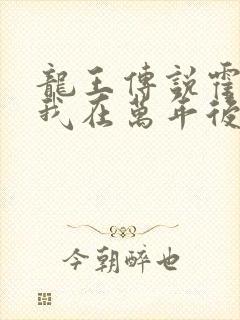 龍王傳說霍
我在萬年後
今朝醉也